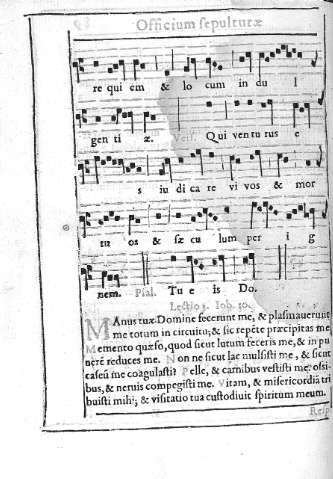 Officium sepulturæ
re qui em & lo cum in dul
gen ti æ. Vers. Qui ven tu rus e
s iu di ca re vi vos & mor
tu os & sæ cu lum per i g
nem. Psal. Tu e is Do.
Lectio 3. Iob. 10.
MAnus tuæ Domine fecerunt me, & plasmauerunt
me totum in circuitu; & sic repẽte præcipitas me
Memento quæso, quod sicut lutum feceris me, & in pu
uerẽ reduces me. Non ne sicut lac mulsisti me, & sicut
caseũ me coagulasti? Pelle, & carnibus vestisti me, ossi-
bus, & neruis compegisti me. Vitam, & misericordiã tri
buisti mihi; & visitatio tua custodiuit spiritum meum.
Resp